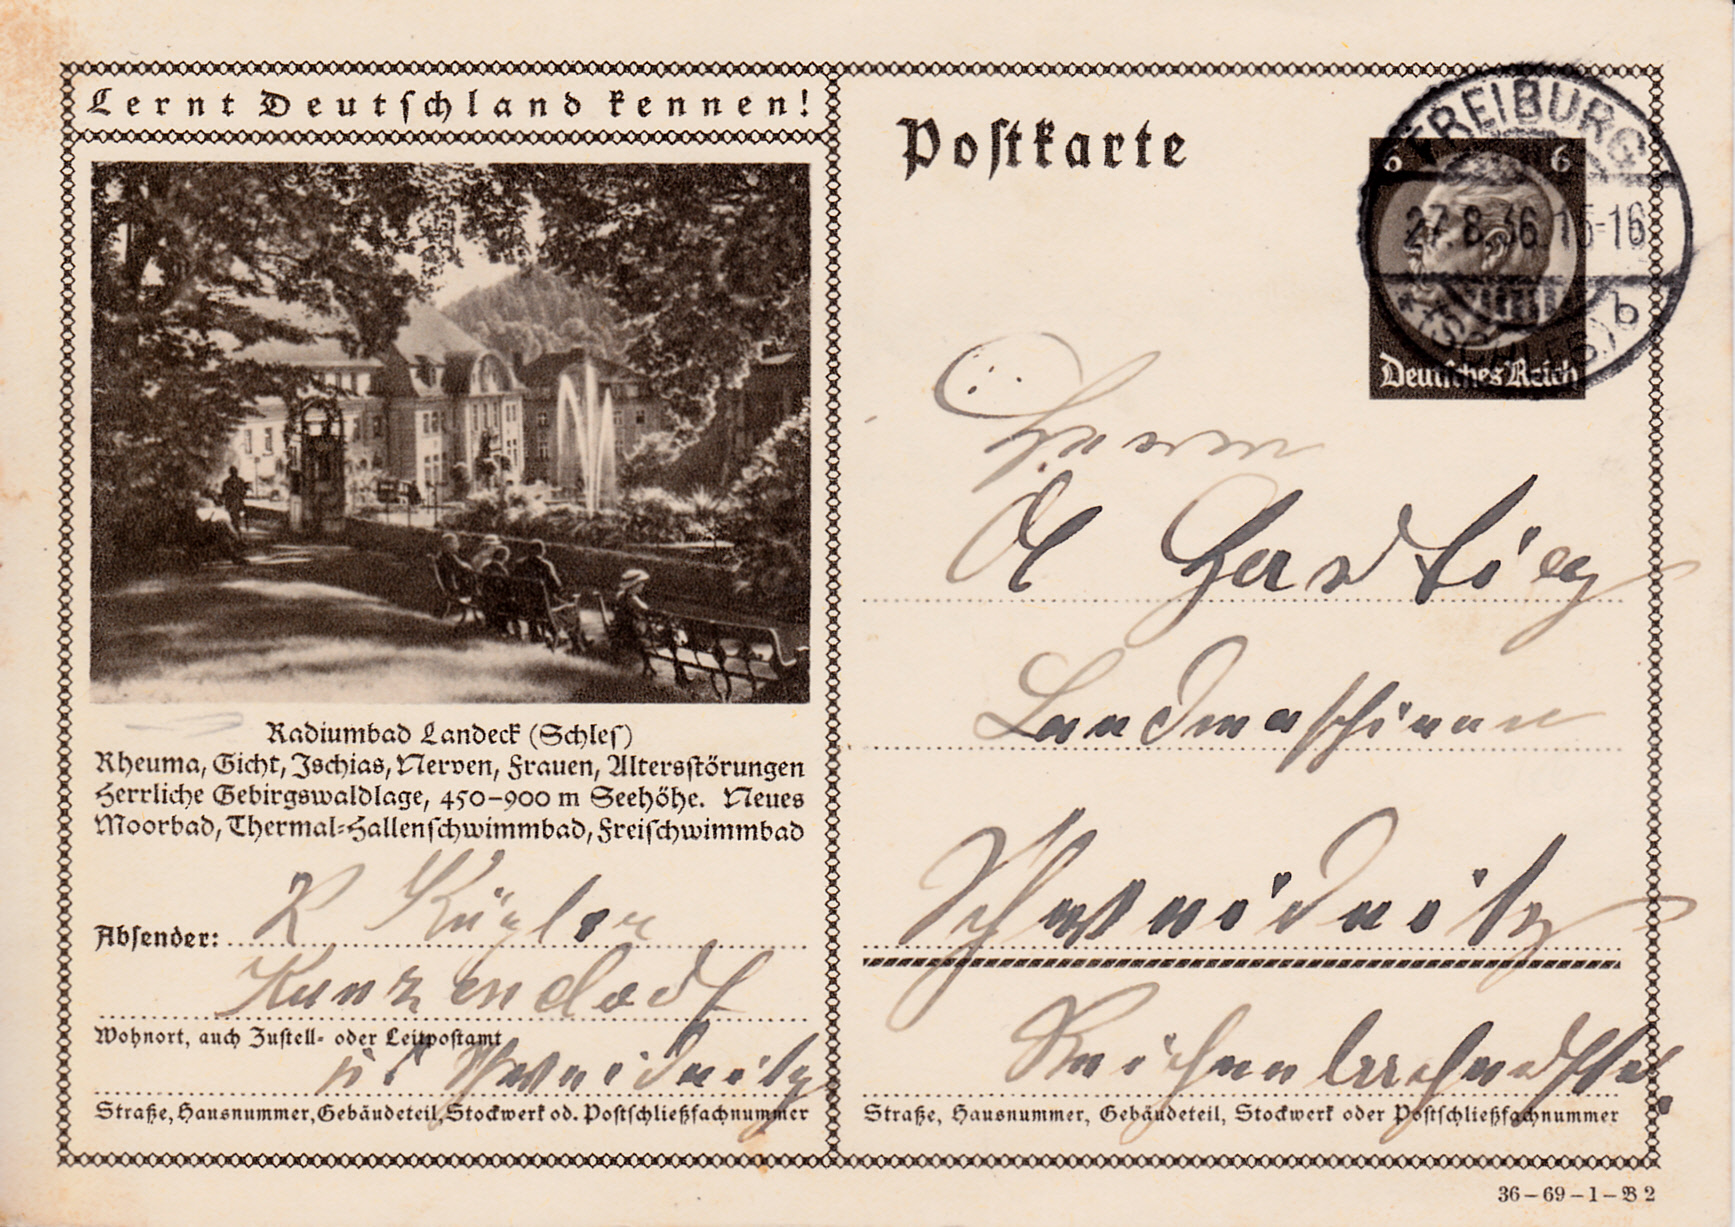 Lernt Deutschland kennen!
Radiumbad Landeck (Schles)
Rheuma, Gicht, Ischias, Nerven, Frauen, Altersstörungen
Herrliche Gebirgswaldlage, 450–900 m Seehöhe. Neues
Moorbad, Thermal-Hallenschwimmbad, Freischwimmbad
Absender: R Kügler
Kunzendorf
Wohnort, auch Zustell- oder Leitpostamt
Schweidnitz
Straße, Hausnummer, Gebäudeteil, Stockwerk od. Postschließfachnummer
Postkarte
6 6
Deutsches Reich
FREIBURG
27.8.36.15-16
b
(SCHLES)
Herrn
Hertig
Landmaschinen
Schweidnitz
Reichenbacherstr.
Straße, Hausnummer, Gebäudeteil, Stockwerk oder Postschließfachnummer
36–69–1–B 2